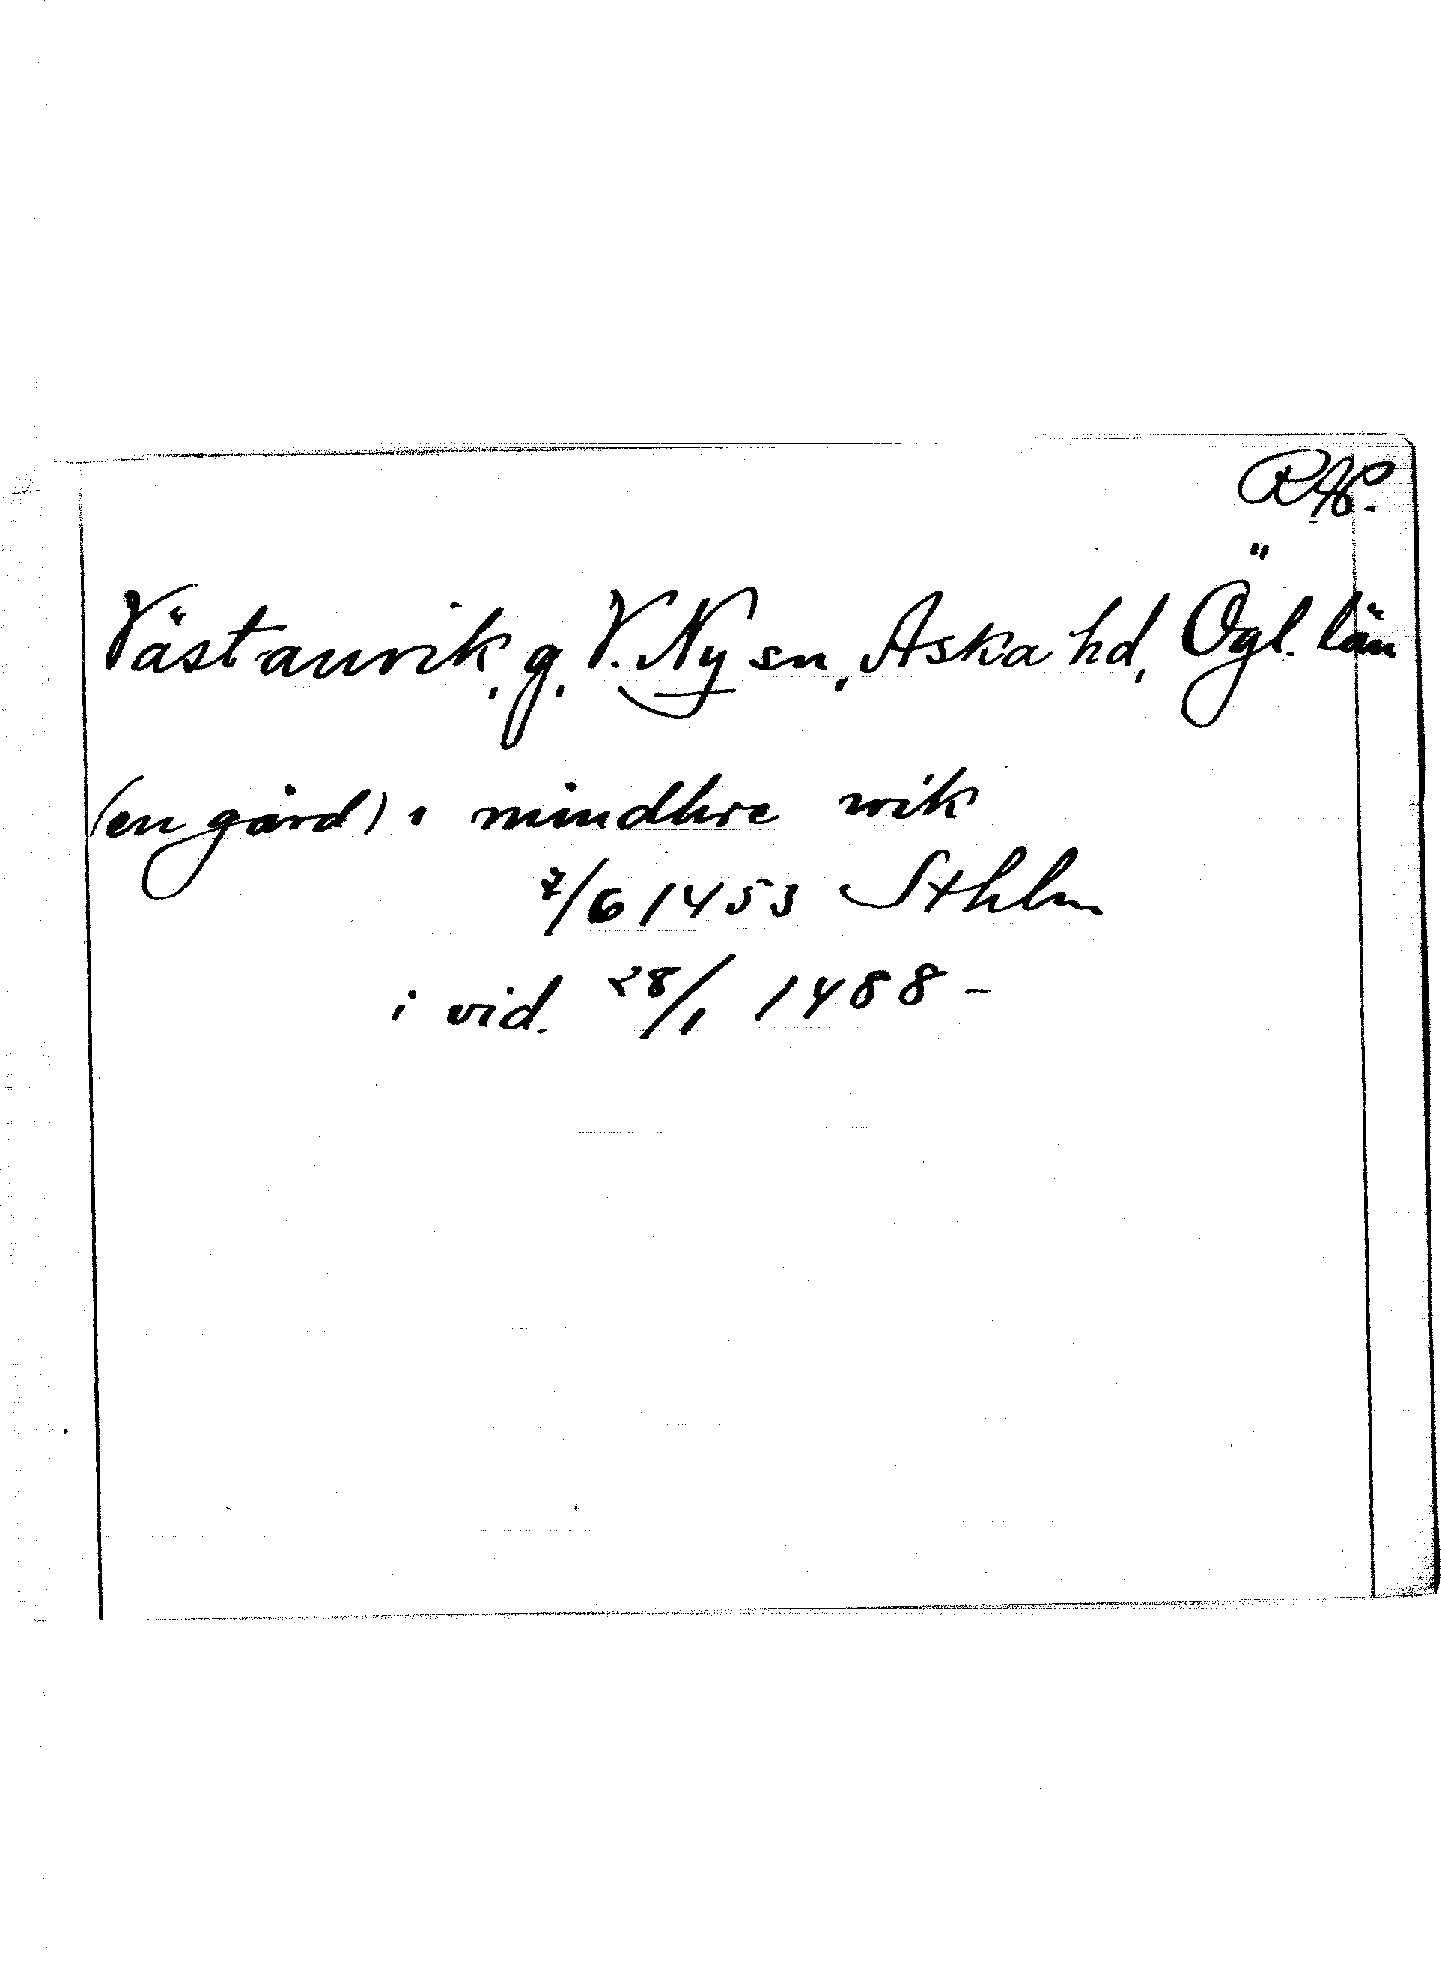 RAP.
Västanvik, g. V. Ny sn, Aska hd, Ögl. län
(en gård) i mindhre wik
7/6 1453 Sthlm
i vid. 28/1 1488 –